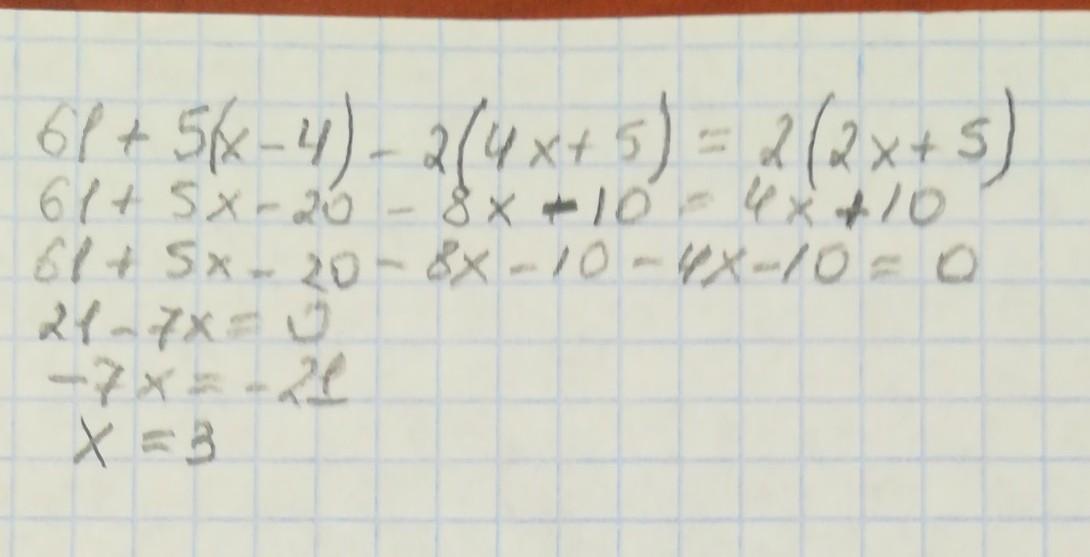 61 + 5(x - 4) - 2(4x + 5) = 2(2x + 5)
61 + 5x - 20 - 8x - 10 = 4x + 10
61 + 5x - 20 - 8x - 10 - 4x - 10 = 0
21 - 7x = 0
-7x = -21
x = 3